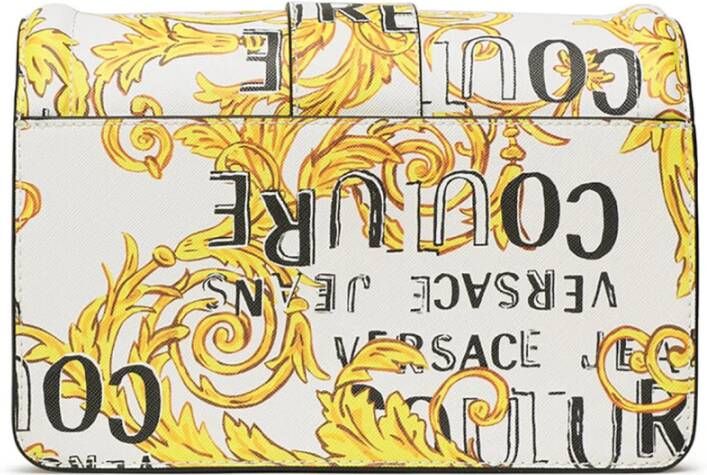 COUTURE
COUTURE
VERSACE JEANS
VERSACE JEA
COUTUR
COU